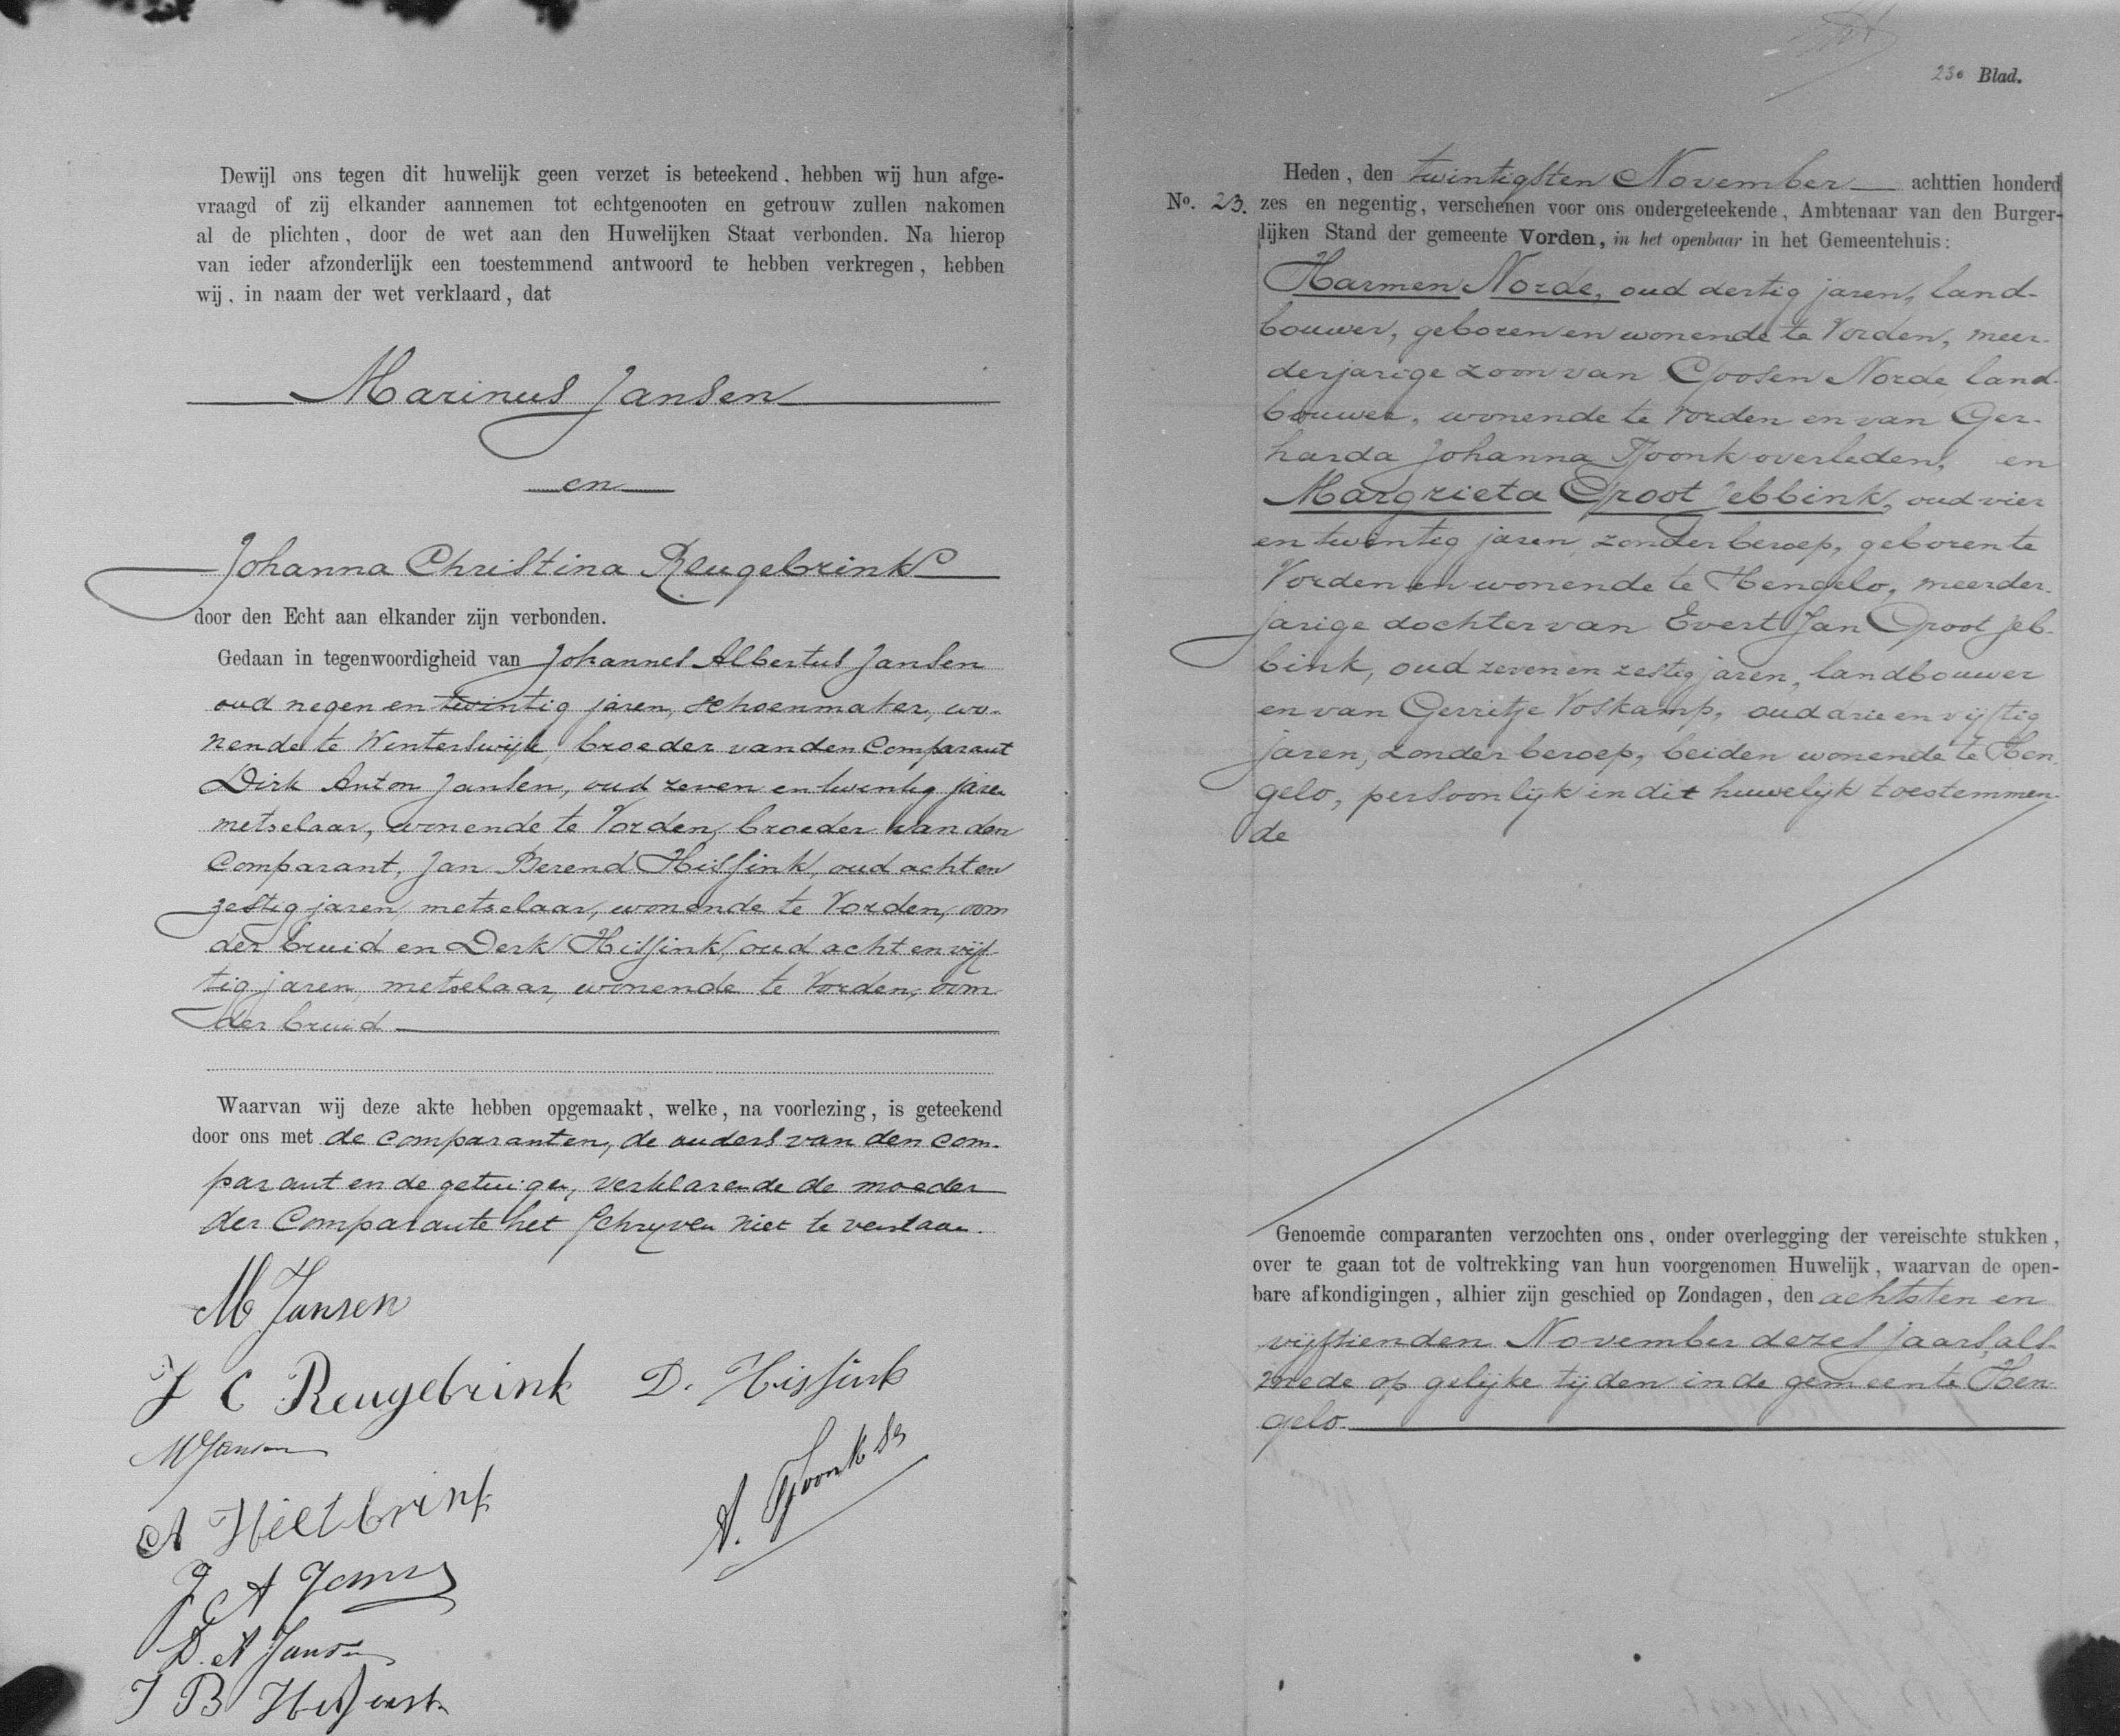 Dewijl ons tegen dit huwelijk geen verzet is beteekend, hebben wij hun afge-
vraagd of zij elkander aannemen tot echtgenooten en getrouw zullen nakomen
al de plichten, door de wet aan den Huwelijken Staat verbonden. Na hierop
van ieder afzonderlijk een toestemmend antwoord te hebben verkregen, hebben
wij, in naam der wet verklaard, dat
Marinus Jansen
en
Johanna Christina Reugebrink
door den Echt aan elkander zijn verbonden.
Gedaan in tegenwoordigheid van Johannes Albertus Jansen
oud negen en twintig jaren, schoenmaker, wo-
nende te Winterswijk, broeder van den Comparant
Dirk Anton Jansen, oud zeven en twintig jaren
metselaar, wonende te Vorden, broeder van den
Comparant, Jan Berend Hissink, oud acht en
zestig jaren, metselaar, wonende te Vorden, oom
der bruid en Derk Hissink, oud acht en vijf-
tig jaren, metselaar, wonende te Vorden, oom
der bruid
Waarvan wij deze akte hebben opgemaakt, welke, na voorlezing, is geteekend
door ons met de comparanten, de ouders van den com-
parant en de getuigen, verklarende de moeder
der Comparante het schryven niet te verstaan.
M Jansen
J C Reugebrink D. Hissink
M Jansen
A Hiltbrink
A. Tjoonk
J A Jansen
D. A Jansen
J B Hissink
23e Blad.
Heden, den twintigsten November achttien honderd
No. 23. zes en negentig, verschenen voor ons ondergeteekende, Ambtenaar van den Burger-
lijken Stand der gemeente Vorden, in het openbaar in het Gemeentehuis:
Harmen Norde, oud dertig jaren, land-
bouwer, geboren en wonende te Vorden, meer-
derjarige zoon van Goosen Norde, land-
bouwer, wonende te Vorden en van Ger-
harda Johanna Tjoonk overleden, en
Margrieta Groot Jebbink, oud vier
en twintig jaren, zonder beroep, geboren te
Vorden en wonende te Hengelo, meerder-
jarige dochter van Evert Jan Groot Jeb-
bink, oud zeven en zestig jaren, landbouwer
en van Gerritje Voskamp, oud drie en vijftig
jaren, zonder beroep, beiden wonende te Hen-
gelo, persoonlijk in dit huwelijk toestemmen-
de
Genoemde comparanten verzochten ons, onder overlegging der vereischte stukken,
over te gaan tot de voltrekking van hun voorgenomen Huwelijk, waarvan de open-
bare afkondigingen, alhier zijn geschied op Zondagen, den achtsten en
vijftienden November dezes jaars, als-
mede op gelijke tijden in de gemeente Hen-
gelo.